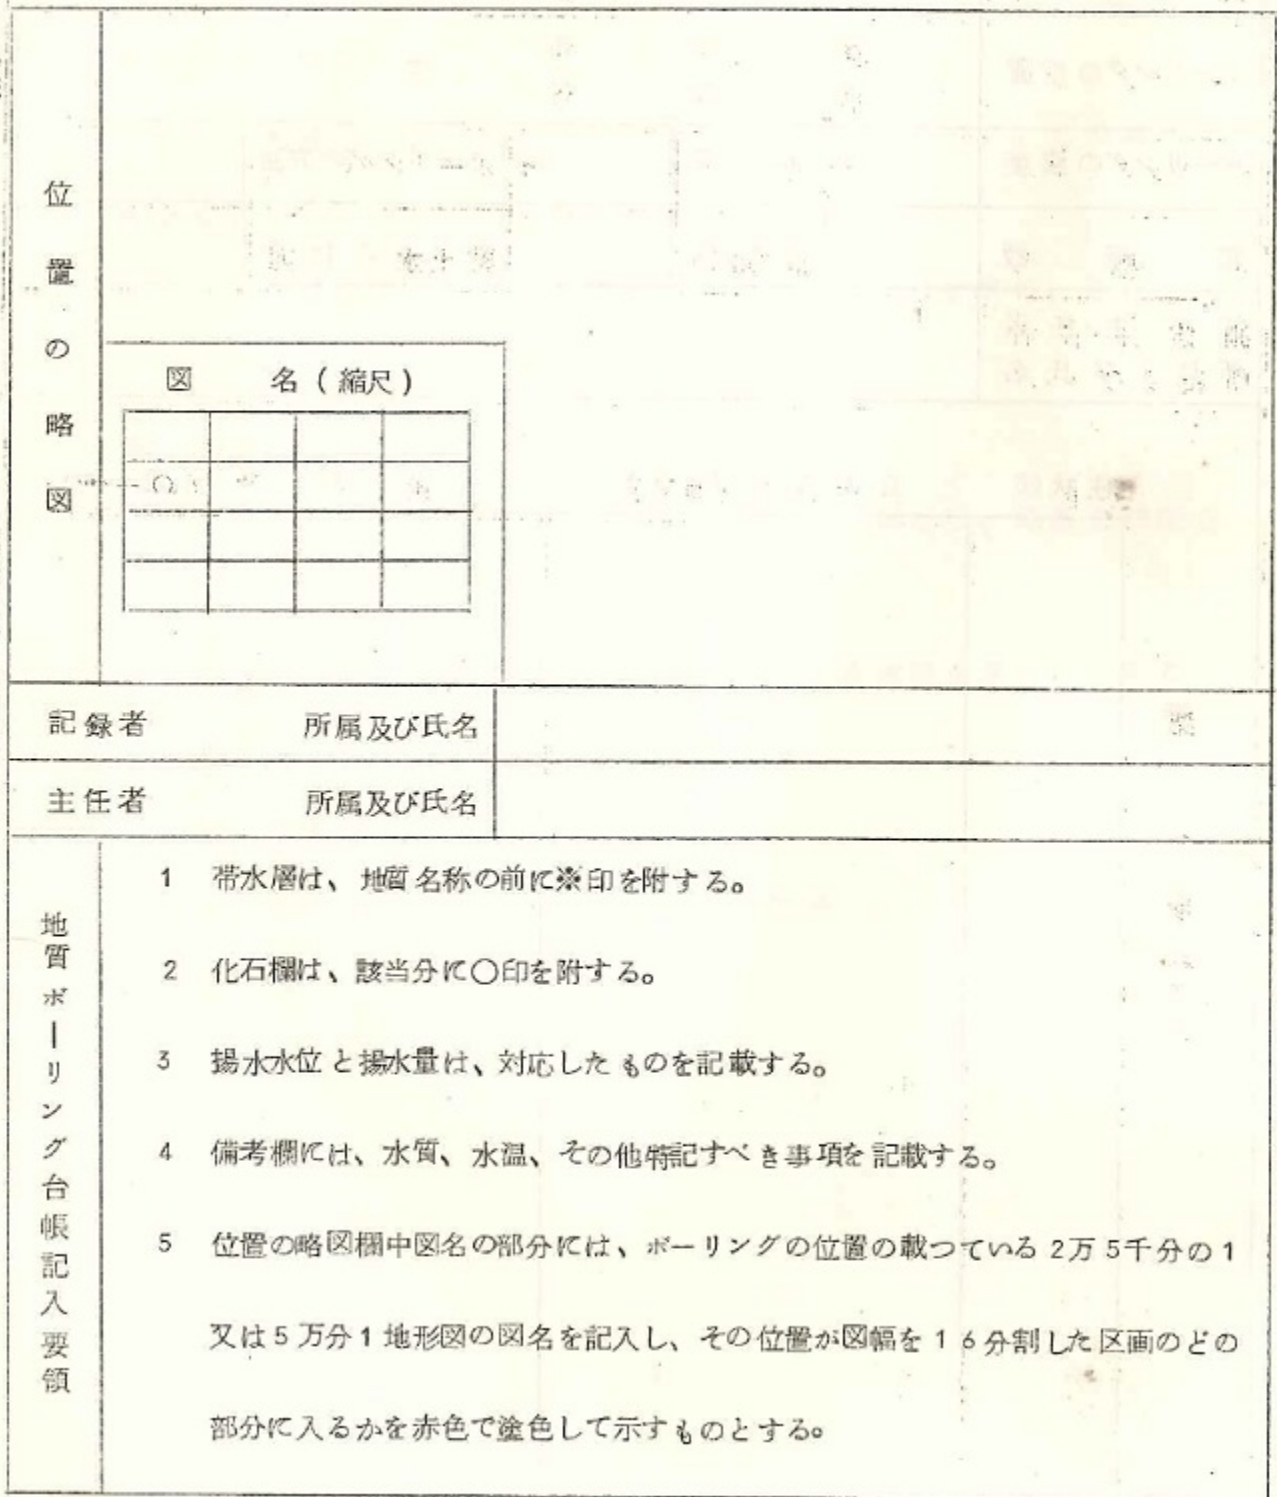 位置の略図
図 名(縮尺)
○
記録者 所属及び氏名
主任者 所属及び氏名
地質ボーリング台帳記入要領
1 帯水層は、地質名称の前に※印を附する。
2 化石欄は、該当分に○印を附する。
3 揚水水位と揚水量は、対応したものを記載する。
4 備考欄には、水質、水温、その他特記すべき事項を記載する。
5 位置の略図欄中図名の部分には、ボーリングの位置の載つている2万5千分の1
又は5万分1地形図の図名を記入し、その位置が図幅を16分割した区画のどの
部分に入るかを赤色で塗色して示すものとする。